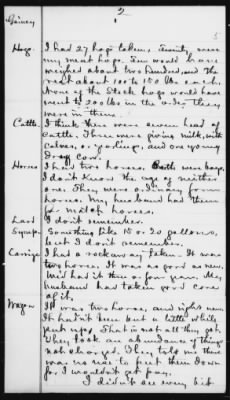 2
Gainey
5
Hogs. I had 27 hogs taken. Twenty were
my meat hogs. Two would have
weighed about two hundred, and the
rest about 100 to 150 lbs each.
None of the stock hogs would have
went to 200 lbs in the order they
were in then.
Cattle. I think there were seven head of
cattle. Three were giving milk, with
calves, or yearlings, and one young
dry cow.
Horses I had two horses. Both were bays,
I don't know the age of neither
one. They were ordinary farm
horses. My husband had them
for match horses.
Lard I don't remember.
Syrup. Something like 15 or 20 gallons,
but I don't remember.
Carriage I had a rockaway taken. It was
two horse. It was as good as new.
We'd had it three or four years. My
husband has taken good care
of it.
Wagon It was two horse, and right new.
It hadn't been but a little while
put up. That is not all they got.
They took an abundance of things
not charged. They told me there
was no use to put them down
for I wouldn't get pay.
I didn't see every bit